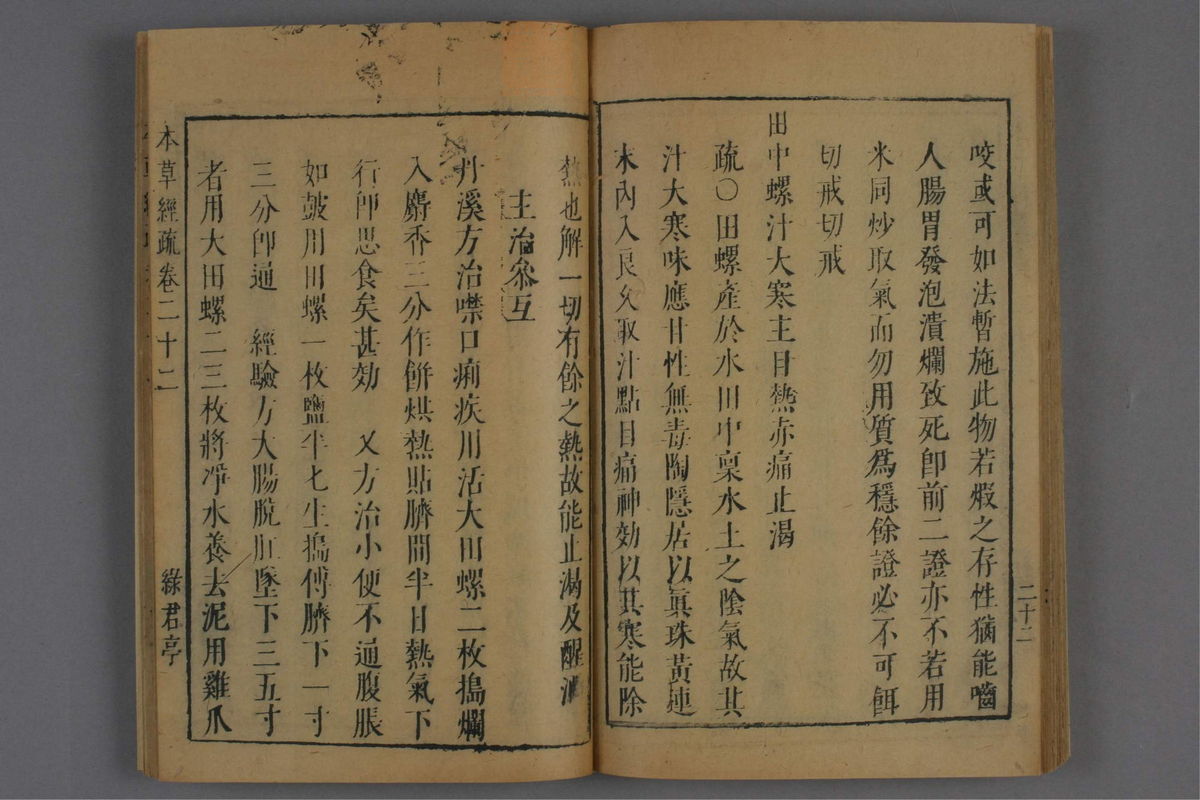 咬或可如法暫施此物若煆之存性猶能嚙
人腸胃發泡潰爛致死卽前二證亦不若用
米同炒取氣而勿用質爲穩餘證必不可餌
切戒切戒
田中螺汁大寒主目熱赤痛止渴
疏〇田螺產於水田中稟水土之陰氣故其
汁大寒味應甘性無毒陶隱居以眞珠黃連
末內入良久取汁點目痛神効以其寒能除
二十二
熱也解一切有餘之熱故能止渴及醒酒
主治參互
丹溪方治噤口痢疾用活大田螺二枚搗爛
入麝香三分作餠烘熱貼臍間半日熱氣下
行卽思食矣甚効 又方治小便不通腹脹
如鼓用田螺一枚鹽半匕生搗傅臍下一寸
三分卽通 經驗方大腸脫肛墜下三五寸
者用大田螺二三枚將凈水養去泥用雞爪
本草經疏卷二十二 綠君亭